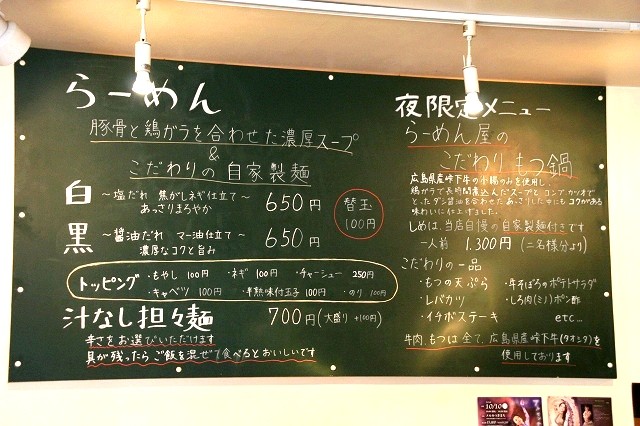 らーめん
豚骨と鶏ガラを合わせた濃厚スープ
&
こだわりの自家製麺
白 ～塩だれ 焦がしネギ仕立て～ 650円
あっさりまろやか
黒 ～醤油だれ マー油仕立て～ 650円
濃厚なコクと旨み
替玉
100円
トッピング
・もやし 100円 ・ネギ 100円 ・チャーシュー 250円
・キャベツ 100円 ・半熟味付玉子 100円 ・のり 100円
汁なし担々麺 700円(大盛り+100円)
辛さをお選びいただけます
具が残ったらご飯を混ぜて食べるとおいしいです
夜限定メニュー
らーめん屋の
こだわりもつ鍋
広島県産峠下牛の小腸のみを使用し、
鶏ガラで長時間煮込んだスープとコンブ、カツオで
とったダシ醤油を合わせた、あっさりした中にもコクがある
味わいに仕上げました。
しめは、当店自慢の自家製麺付きです
一人前 1,300円(二名様分より)
こだわりの一品
・もつの天ぷら ・牛そぼろのポテトサラダ
・レバカツ ・しろ肉(ミノ)ポン酢
・イチボステーキ etc...
牛肉、もつは全て、広島県産峠下牛(タオシタ)を
使用しております
10/10